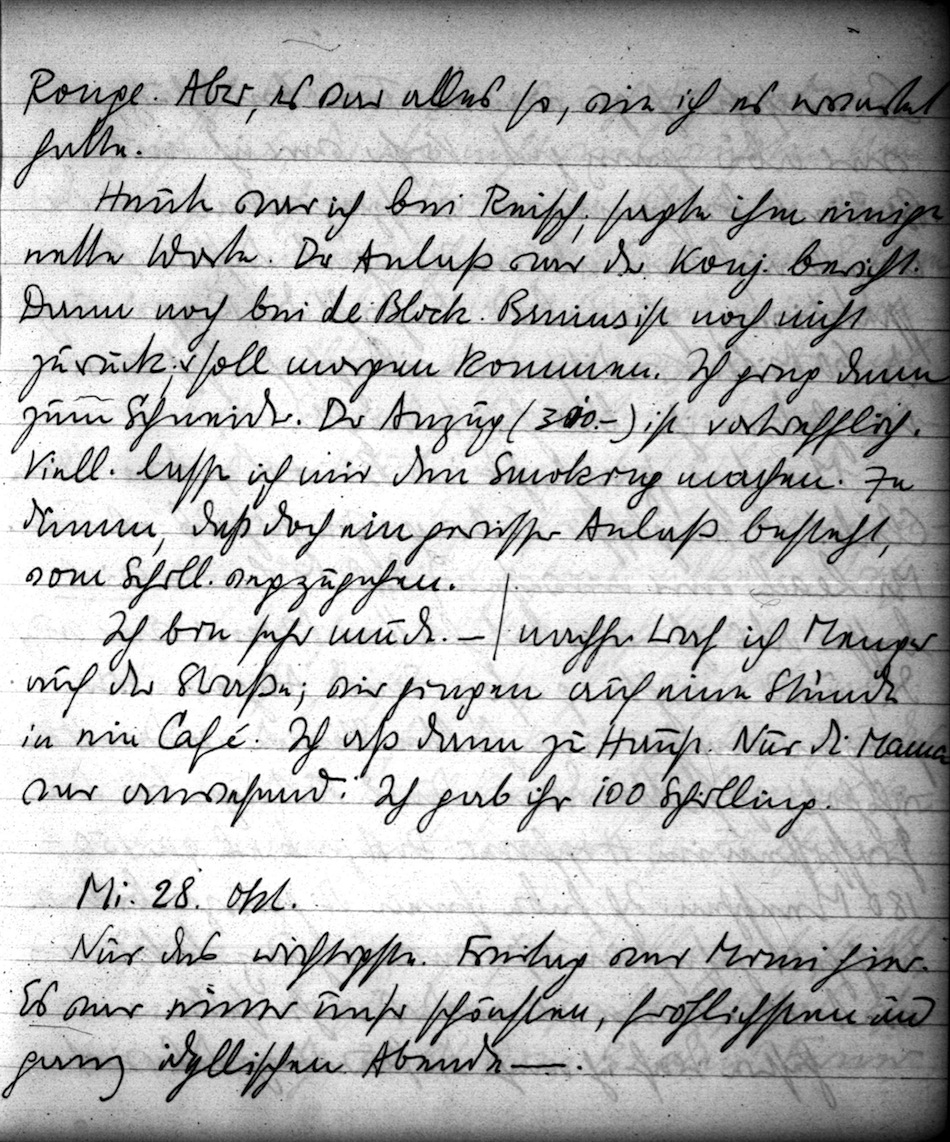 Rouge. Aber, es war alles so, wie ich es erwartet
hatte.
Heute war ich bei Reisch; sagte ihm einige
nette Worte. Der Anlaß war der Konj. bericht.
Dann noch bei de Block. Remus ist noch nicht
zurück; soll morgen kommen. Ich ging dann
zum Schneider. Der Anzug (300.–) ist vortrefflich.
Viell. lasse ich mir den Smoking machen. Zu
dumm, daß doch ein gewisser Anlaß besteht,
vom Schill. wegzugehen.
Ich bin sehr müde. — | nachher traf ich Menger
auf der Straße; wir gingen auf eine Stunde
in ein Café. Ich aß dann zu Hause. Nur die Mama
war anwesend. Ich gab ihr 100 Schilling.
Mi. 28. Okt.
Nur das wichtigste. Freitag war Mimi hier.
Es war einer unsrer schönsten, fröhlichsten und
ganz idyllischen Abende —.